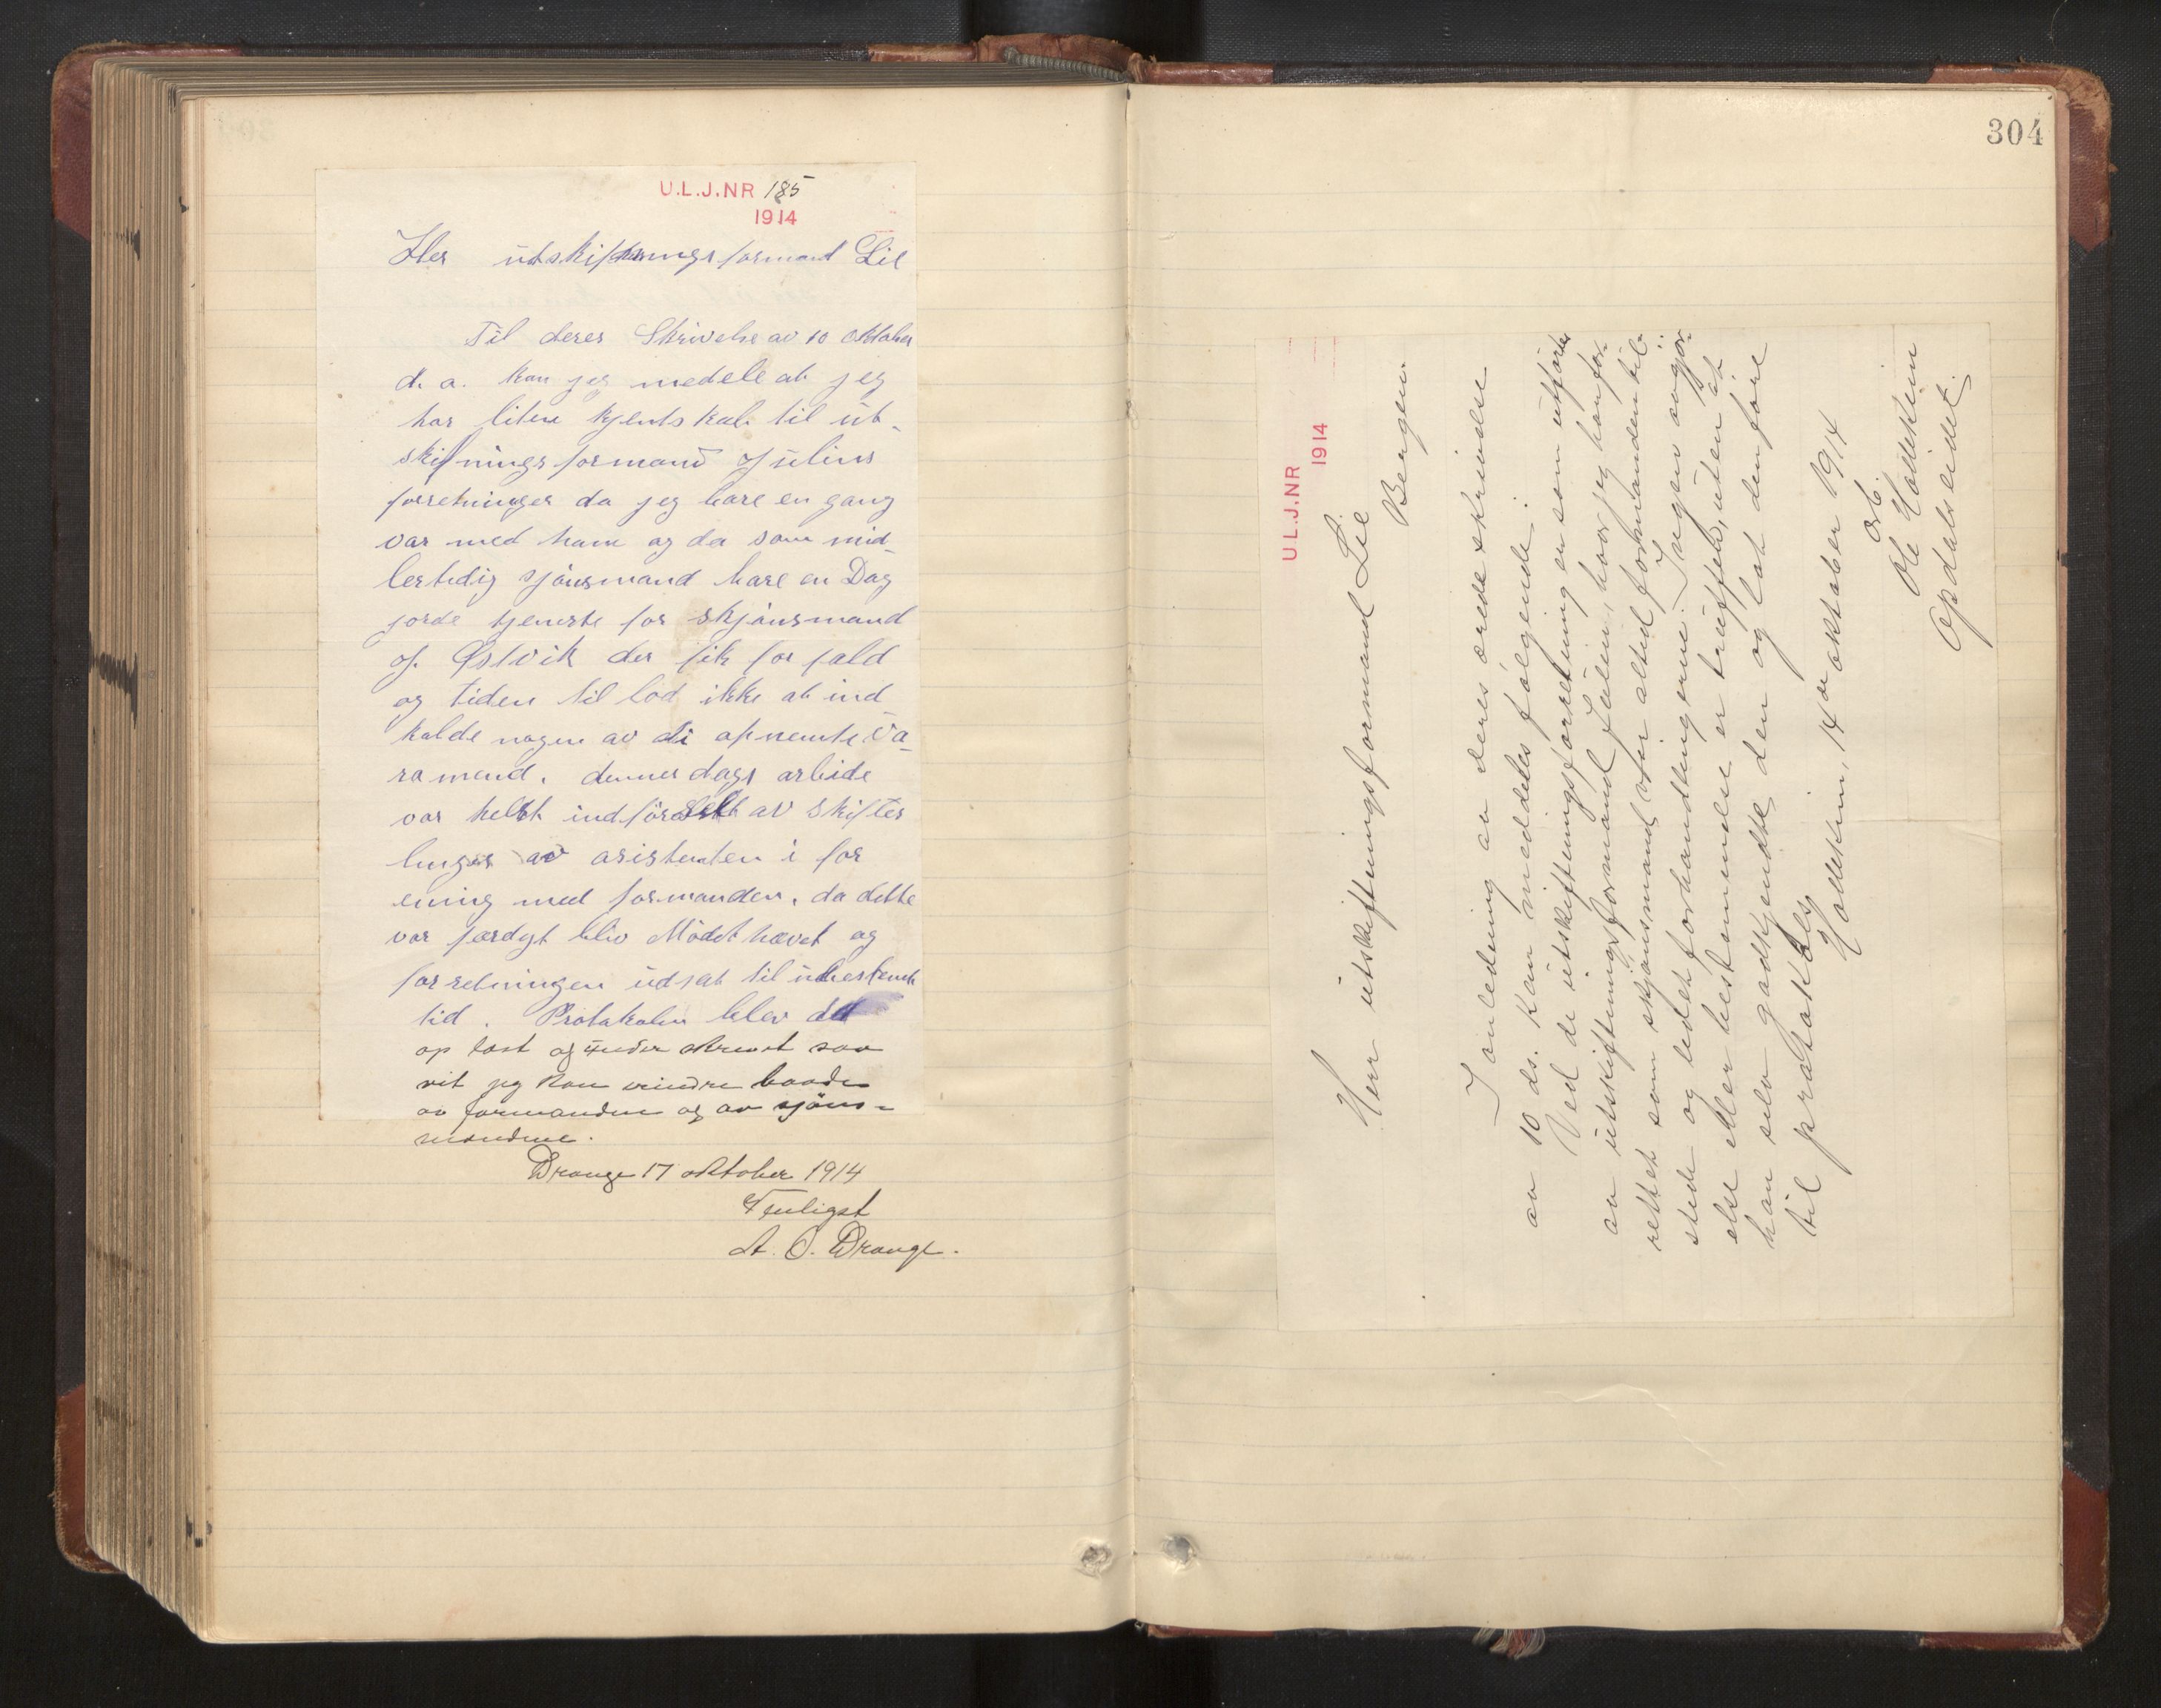 U.L.J.NR 185
1914
Her utskiftningsformand Lie
Til deres Skrivelse av 10 oktober
d. a. kan jeg medele at jeg
har liten kjentskab til ut-
skifningsformand Julius
forretninger da jeg bare en gang
var med ham og da som mid-
lertidig sjønsmand bare en Dag
jorde tjeneste for skjønsmand
J. Østvik der fik forfald
og tiden til lod ikke at ind
kalde nogen av di opnemte va-
ramend. dennes dags arbide
var helt indførselt av skifter
linger av asistenten i for
ening med formanden. da dette
var færdigt blev Mödet hævet og
forretningen udsat til ubestemt
tid. Protokolen blev da
op læst og under skrevet saa
vit jeg kan erindre baade
av formanden og av sjøns-
mændene.
Drange 17 oktober 1914
Venligst
A. O. Drange.
304
U.L.J.NR
1914
Herr utskiftningsformand Lie
Bergen.
I anledning av deres ærede skrivelse
av 10 ds. kan meddeles følgende:
Ved de utskiftningsforretninger som utførtes
av utskiftningsformand Julin, hvor jeg har for-
rettet som skjønsmand, var altid formanden til-
stede og ledet forhandlingerne. Ingen avgjør-
else eller bestemmelse er truffet, uten at
han selv godkjendte den og lot den føre
til protokols
Hollekim, 14de oktober 1914
Ærb.
Ole Hollekim
Opdalseidet.